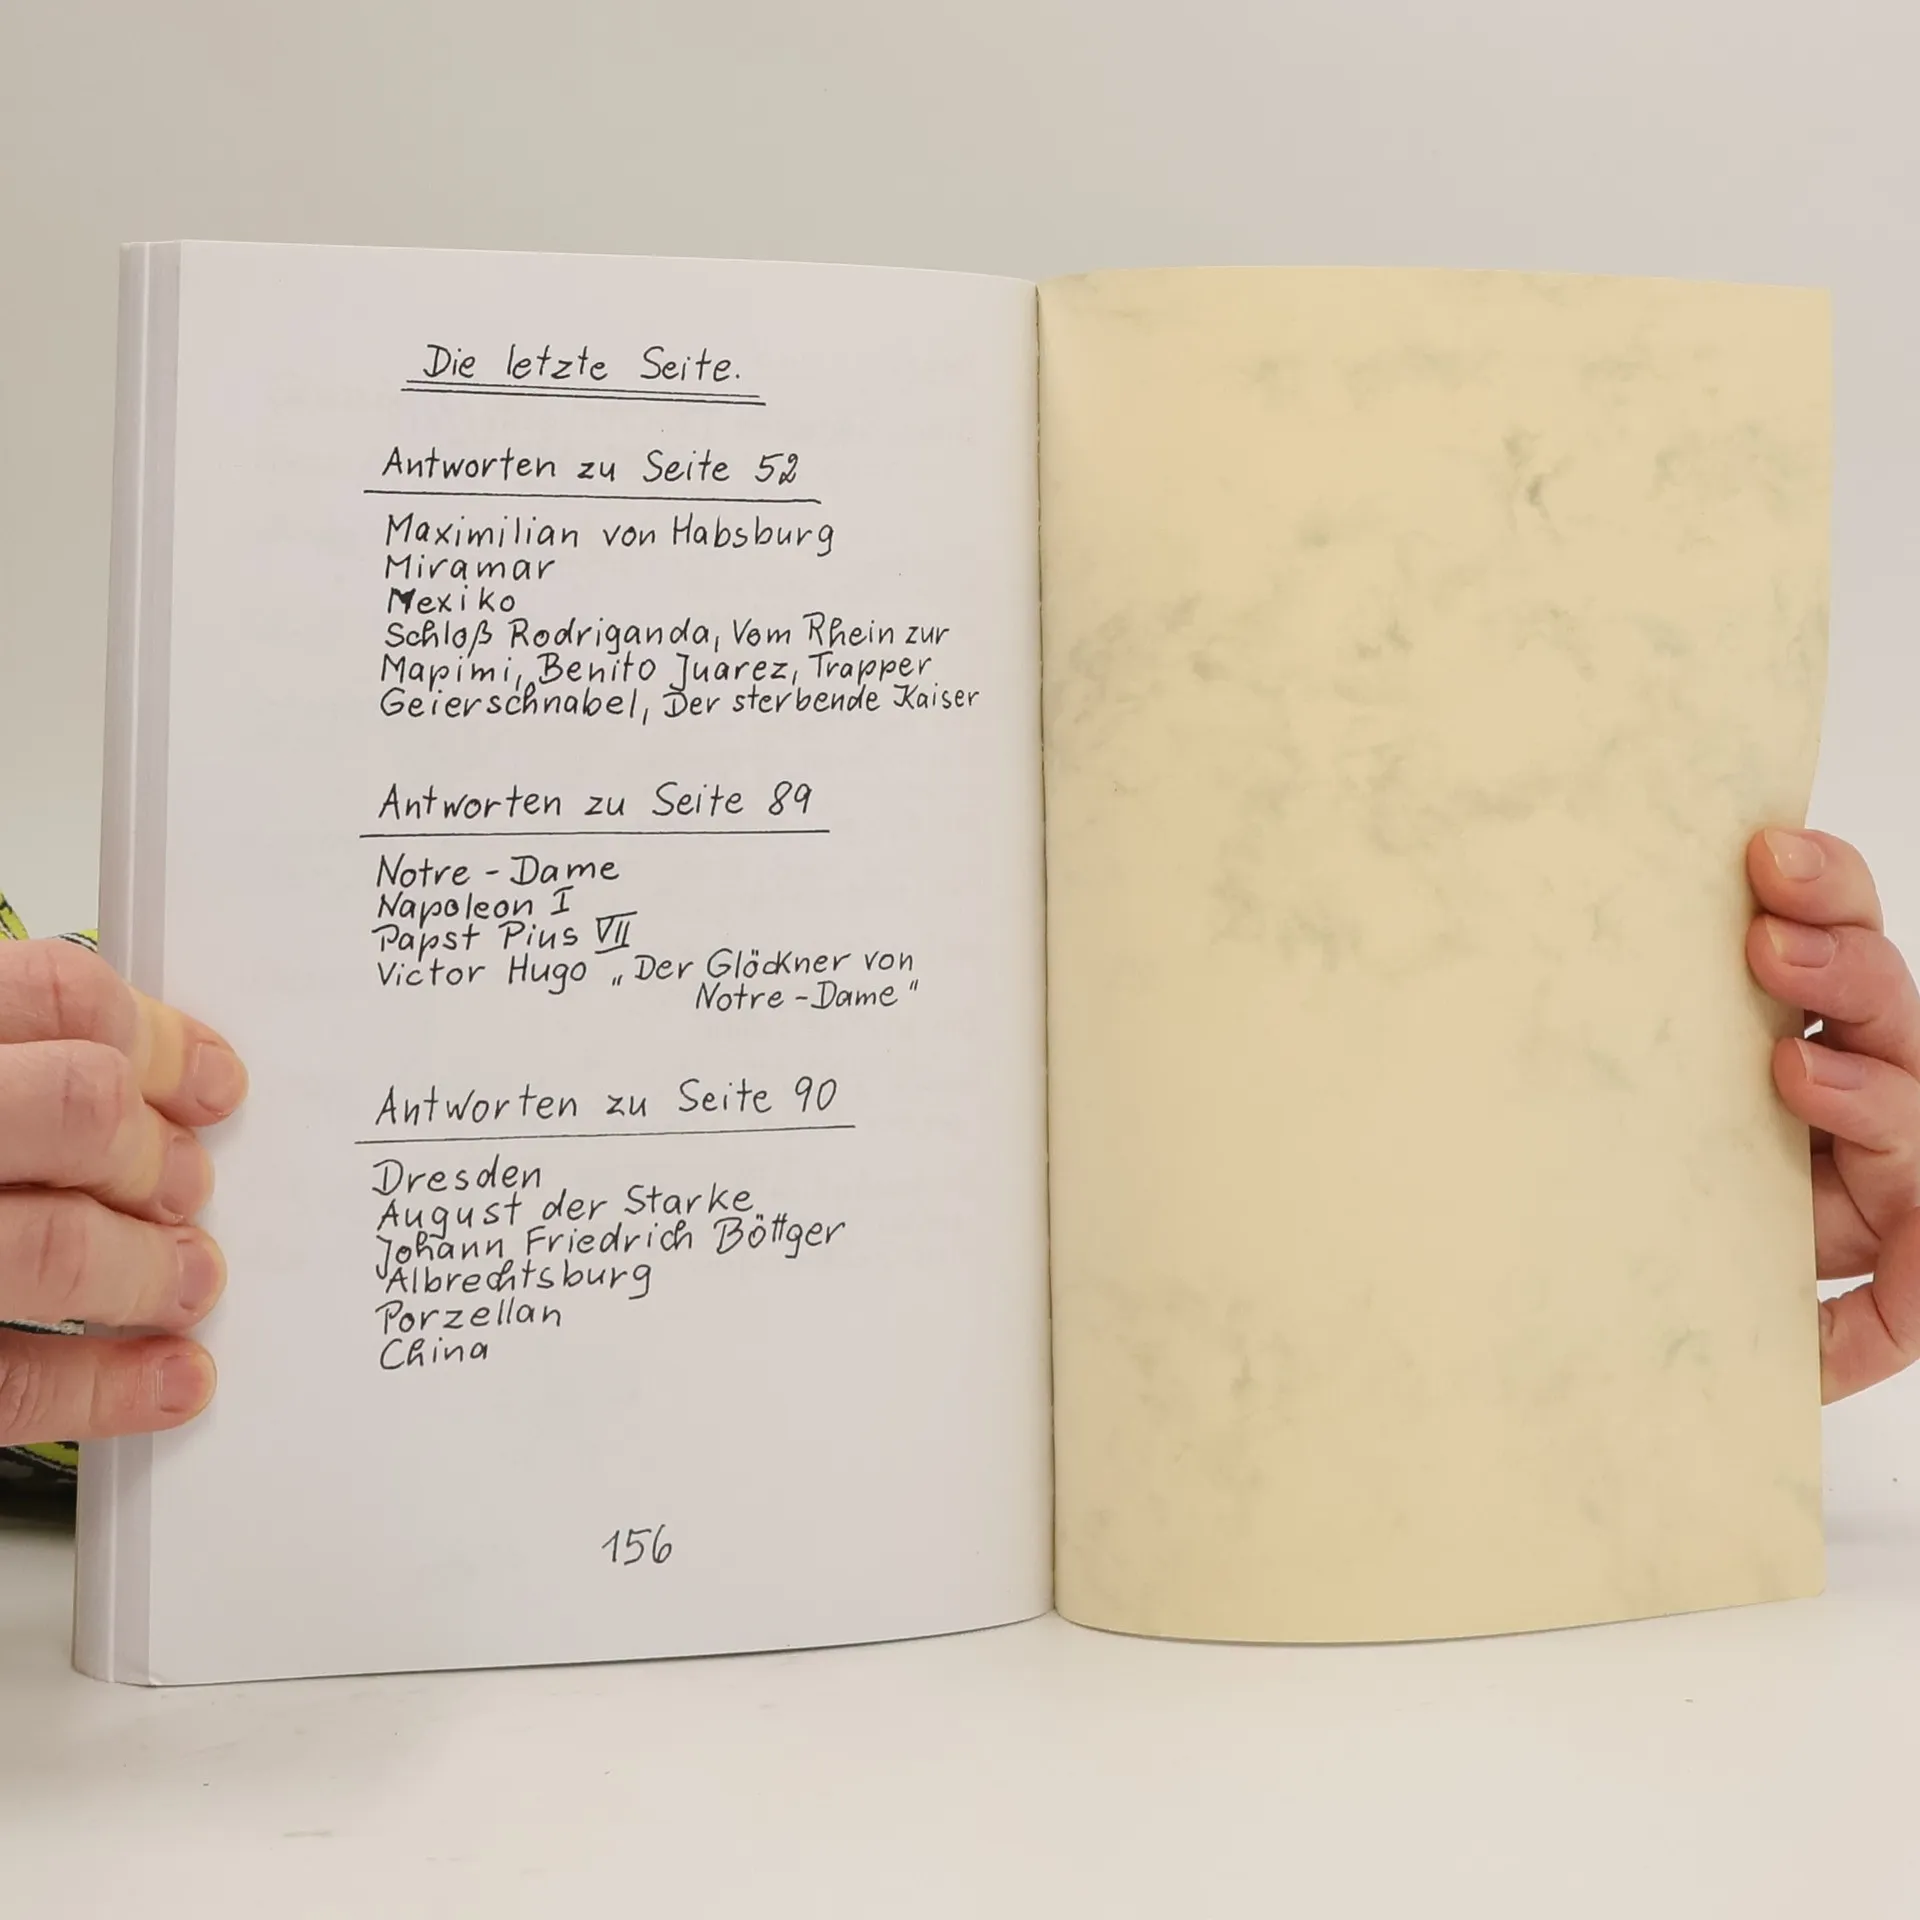 Die letzte Seite.
Antworten zu Seite 52
Maximilian von Habsburg
Miramar
Mexiko
Schloß Rodriganda, Vom Rhein zur
Mapimi, Benito Juarez, Trapper
Geierschnabel, Der sterbende Kaiser
Antworten zu Seite 89
Notre-Dame
Napoleon I
Papst Pius VII
Victor Hugo „Der Glöckner von
Notre-Dame"
Antworten zu Seite 90
Dresden
August der Starke
Johann Friedrich Böttger
Albrechtsburg
Porzellan
China
156